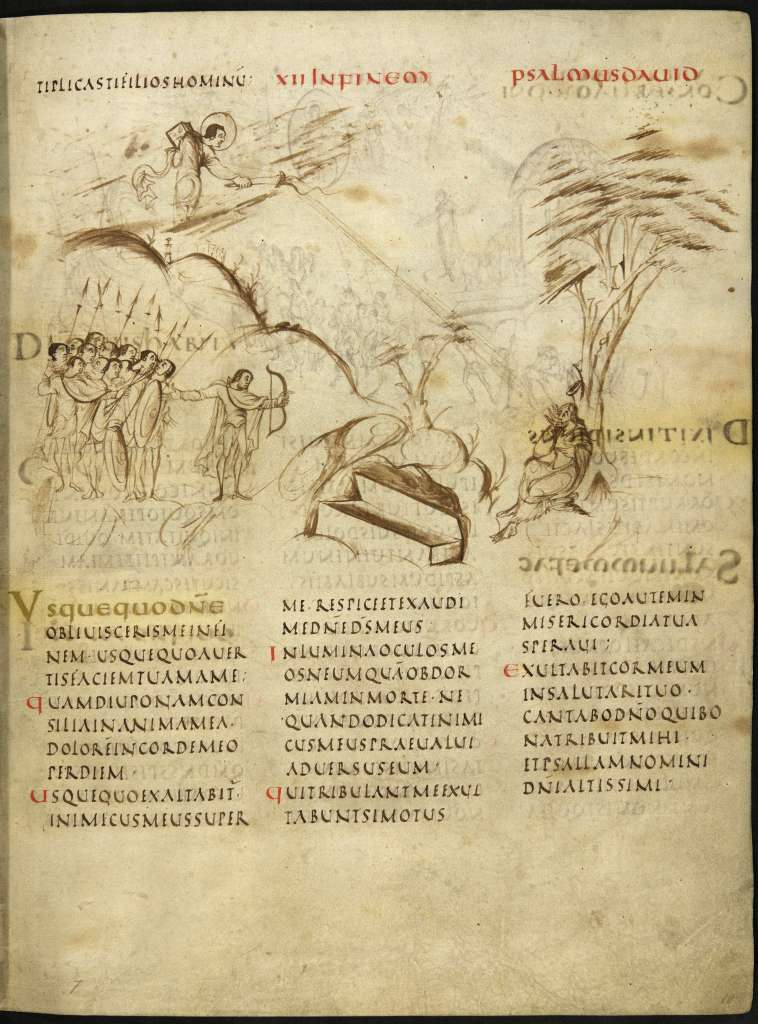 TIPLICASTIFILIOSHOMINŪ·
XII INFINEM
PSALMUSDAUID
VSQUEQUODÑE
OBLIUISCERISMEINFI
NEM·USQUEQUOAUER
TISFACIEMTUAMAME·
QUAMDIUPONAMCON
SILIAINANIMAMEA·
DOLOREINCORDEMEO
PERDIEM
USQUEQUOEXALTABIT͞·
INIMICUSMEUSSUPER
ME·RESPICEETEXAUDI
MEDÑED͞SMEUS·
INLUMINAOCULOSME
OSNEUMQUĀOBDOR
MIAMINMORTE·NE
QUANDODICATINIMI
CUSMEUSPRAEUALUI
ADUERSUSEUM·
QUITRIBULANTMEEXUL
TABUNTSIMOTUS
FUERO·EGOAUTEMIN
MISERICORDIATUA
SPERAUI·
EXULTABITCORMEUM
INSALUTARITUO·
CANTABODÑOQUIBO
NATRIBUITMIHI
ETPSALLAMNOMINI
DÑIALTISSIMI·
7